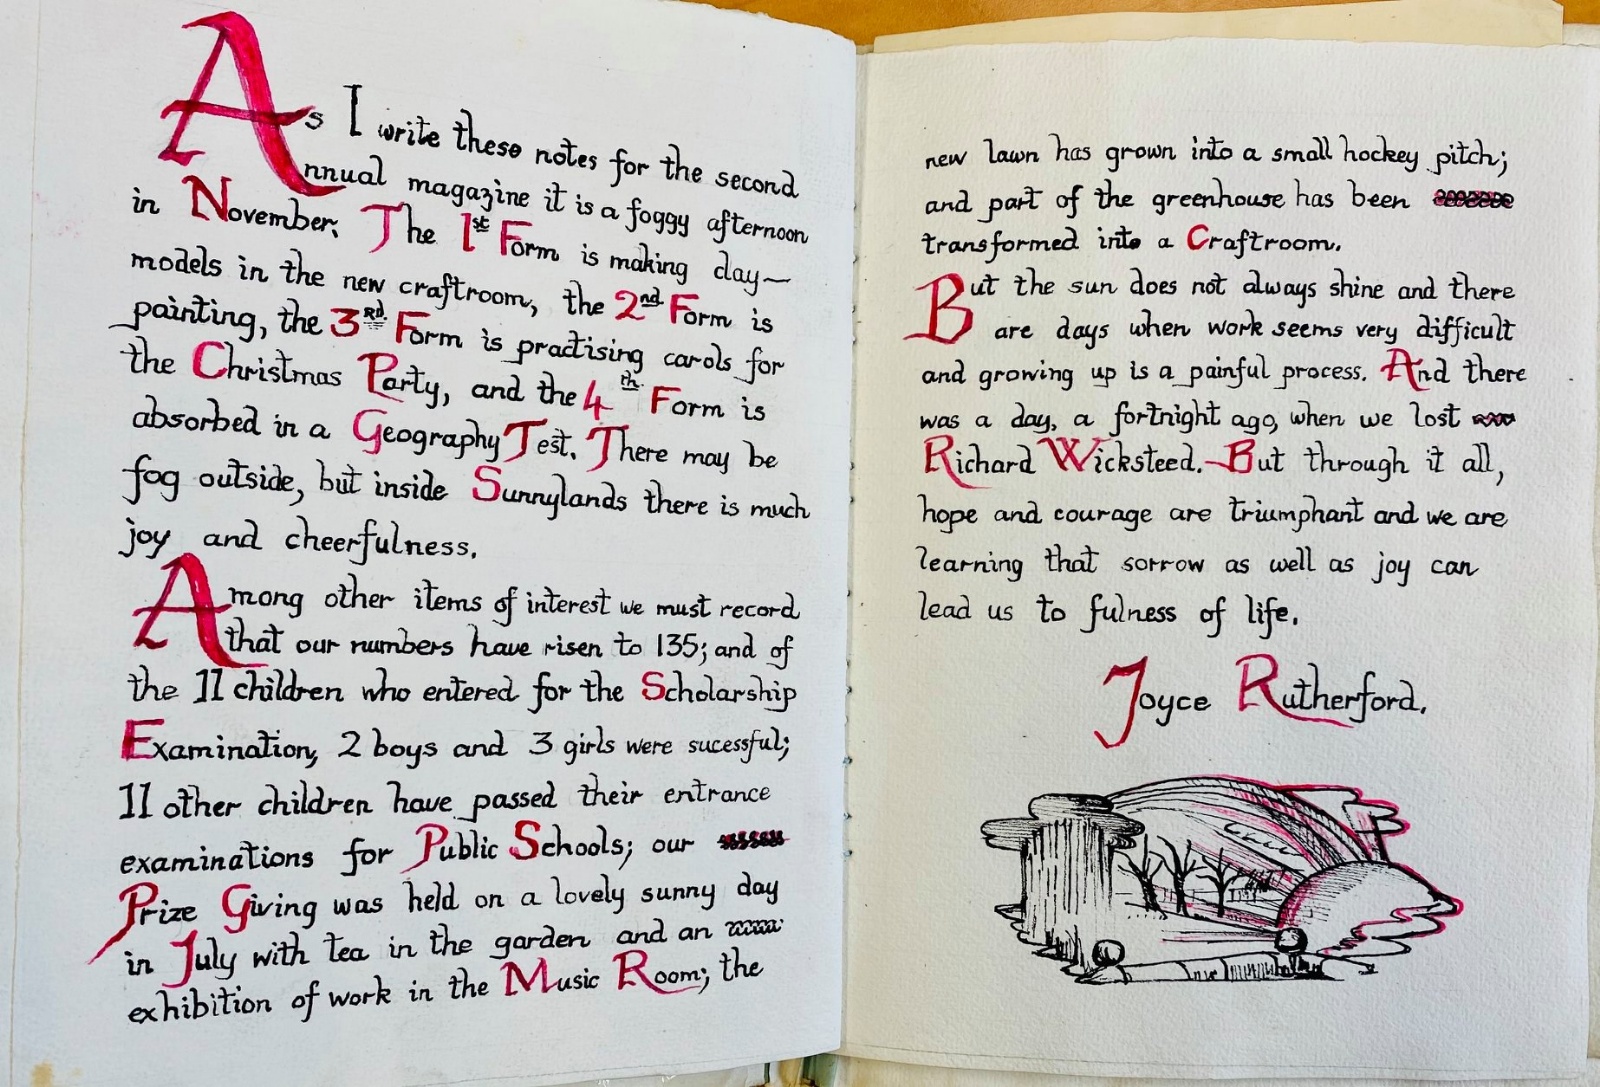 As I write these notes for the second
Annual magazine it is a foggy afternoon
in November. The 1st Form is making clay—
models in the new craftroom, the 2nd Form is
painting, the 3RD Form is practising carols for
the Christmas Party, and the 4th Form is
absorbed in a Geography Test. There may be
fog outside, but inside Sunnylands there is much
joy and cheerfulness.
Among other items of interest we must record
that our numbers have risen to 135; and of
the 11 children who entered for the Scholarship
Examination, 2 boys and 3 girls were sucessful;
11 other children have passed their entrance
examinations for Public Schools; our
Prize Giving was held on a lovely sunny day
in July with tea in the garden and an
exhibition of work in the Music Room; the
new lawn has grown into a small hockey pitch;
and part of the greenhouse has been
transformed into a Craftroom.
But the sun does not always shine and there
are days when work seems very difficult
and growing up is a painful process. And there
was a day, a fortnight ago, when we lost
Richard Wicksteed. But through it all,
hope and courage are triumphant and we are
learning that sorrow as well as joy can
lead us to fulness of life.
Joyce Rutherford.